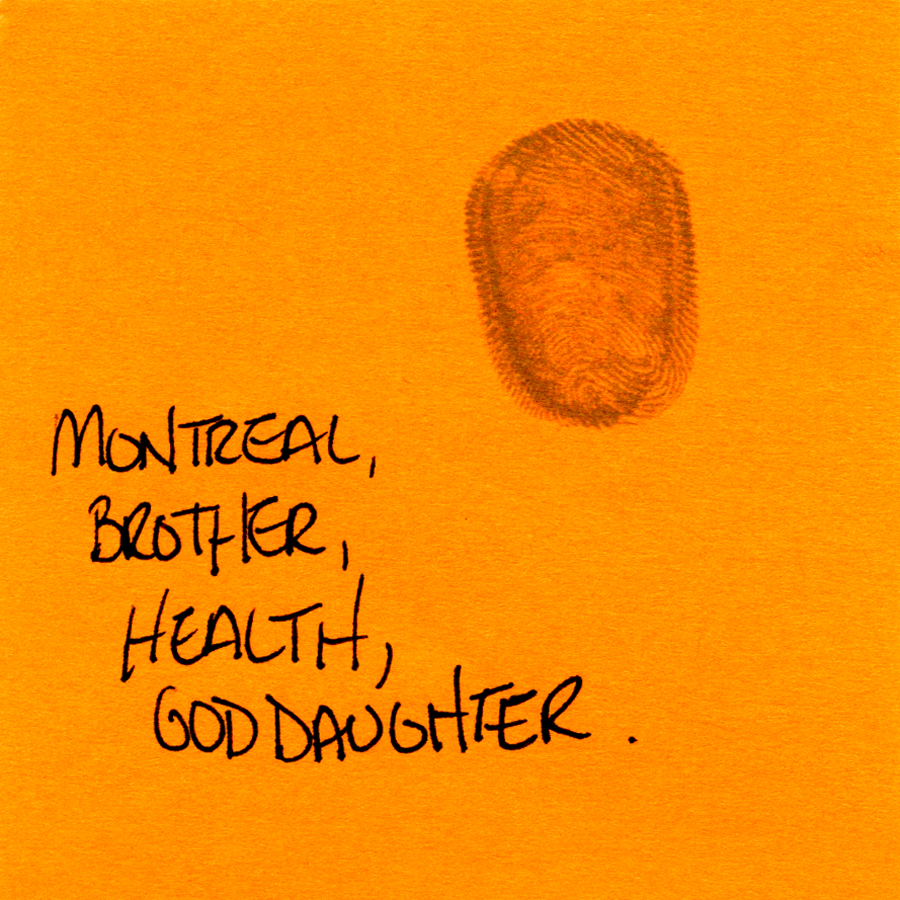 MONTREAL,
BROTHER,
HEALTH,
GODDAUGHTER.